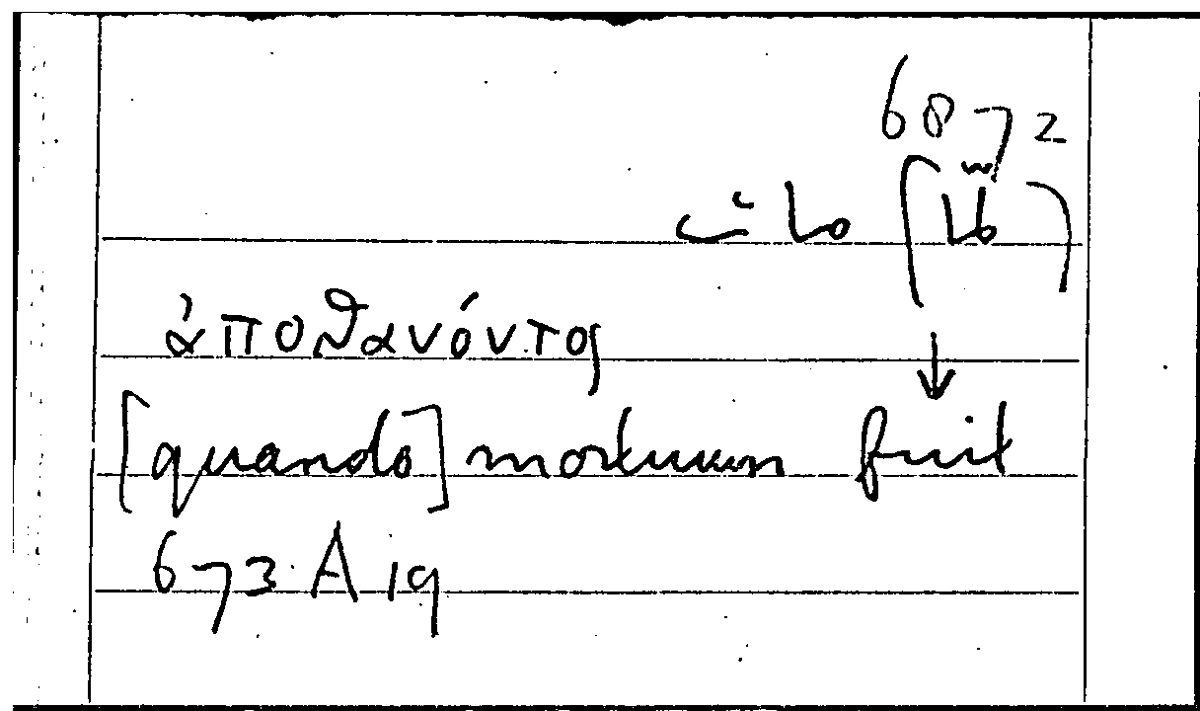 6872
مات (لما)
ἀποθανόντος
[quando] mortuum fuit
673 A 19